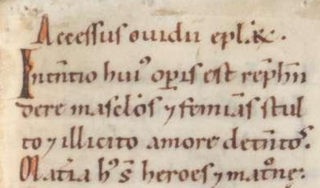 Accessus ouidii epl'aꝝ.
Intentio hui' op̲is est rep̲hēn
dere masclōs ⁊ femiās stul
to ⁊ illicito amore detētos.
Mat̄ia h' s̄ heroes ⁊ mat°ne.